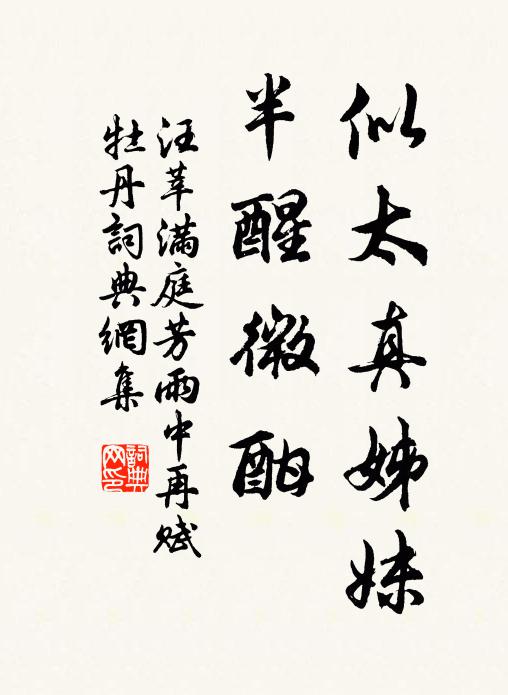 似太真姊妹
半醒微酣
汪莘滿庭芳雨中再賦
牡丹詞典網集
詞典网印